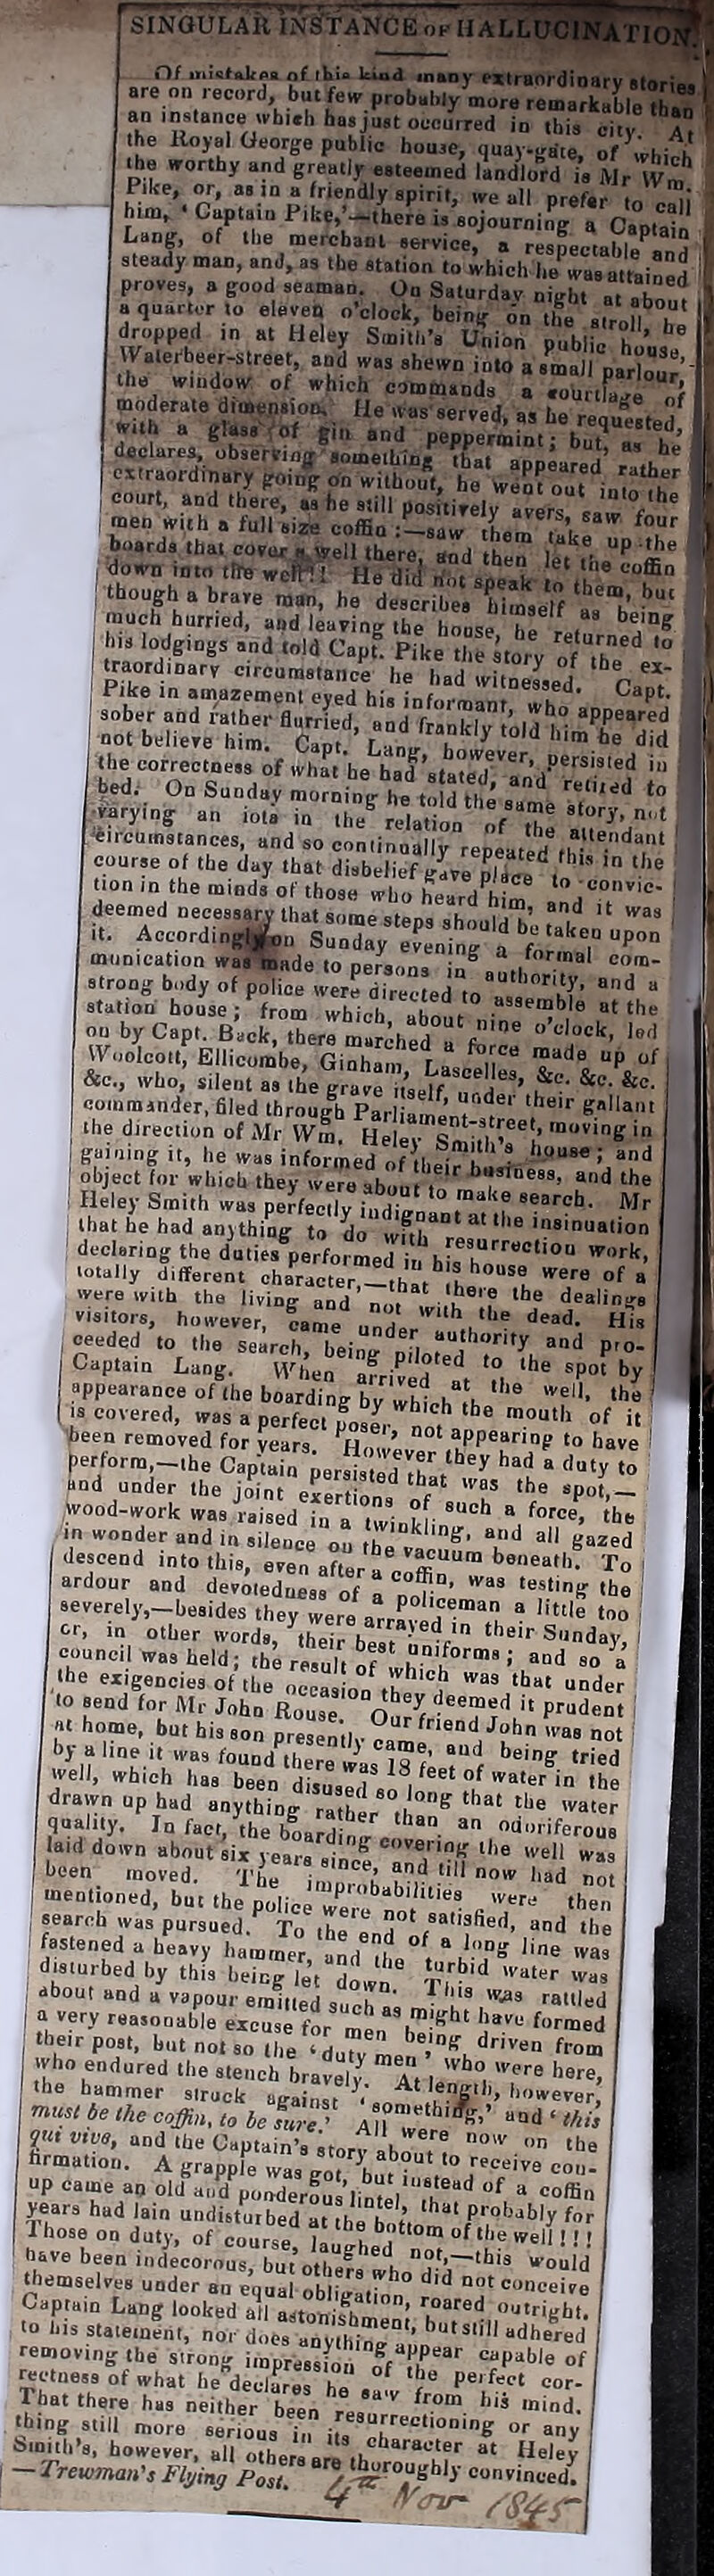 SINGULAR INSTANCE OF HALLUCINATION.
Of mistakes of this kind many extraordinary stories
are on record, but few probably more remarkable than
an instance which has just occurred in this city. At
the Royal George public house, quay-gate, of which
the worthy and greatly esteemed landlord is Mr Wm.
Pike, or, as in a friendly spirit, we all prefer to call
him, ‘Captain Pike,’—there is sojourning a Captain
Lang, of the merchant service, a respectable and
steady man, and, as the station to which he was attained
proves, a good seaman. On Saturday night at about
a quarter to eleven o'clock, being on the stroll, he
dropped in at Heley Smith's Union public house,
Waterbeer-street, and was shewn into a small parlour,
the window of which commands a courtlage of
moderate dimension. He was served, as he requested,
with a glass of gin and peppermint; but, as he
declares, observing something that appeared rather
extraordinary going on without, he went out into the
court, and there, as he still positively avers, saw four
men with a full size coffin :—saw them take up the
boards that cover a well there, and then let the coffin
down into the well!! He did not speak to them, but
though a brave man, he describes himself as being
much hurried, and leaving the house, he returned to
his lodgings and told Capt. Pike the story of the ex-
traordinary circumstance he had witnessed. Capt.
Pike in amazement eyed his informant, who appeared
sober and rather flurried, and frankly told him he did
not believe him. Capt. Lang, however, persisted in
the correctness of what he had stated, and retired to
bed. On Sunday morning he told the same story, not
varying an iota in the relation of the attendant
circumstances, and so continually repeated this in the
course of the day that disbelief gave place to convic-
tion in the minds of those who heard him, and it was
deemed necessary that some steps should be taken upon
it. Accordingly on Sunday evening a formal com-
munication was made to persons in authority, and a
strong body of police were directed to assemble at the
station house; from which, about nine o'clock, led
on by Capt. Back, there marched a force made up of
Woolcott, Ellicombe, Ginham, Lascelles, &c. &c. &c.
&c., who, silent as the grave itself, under their gallant
commander, filed through Parliament-street, moving in
the direction of Mr Wm. Heley Smith's house; and
gaining it, he was informed of their business, and the
object for which they were about to make search. Mr
Heley Smith was perfectly indignant at the insinuation
that he had anything to do with resurrection work,
declaring the duties performed in his house were of a
totally different character,—that there the dealings
were with the living and not with the dead. His
visitors, however, came under authority and pro-
ceeded to the search, being piloted to the spot by
Captain Lang. When arrived at the well, the
appearance of the boarding by which the mouth of it
is covered, was a perfect poser, not appearing to have
been removed for years. However they had a duty to
perform,—the Captain persisted that was the spot,—
and under the joint exertions of such a force, the
wood-work was raised in a twinkling, and all gazed
in wonder and in silence on the vacuum beneath. To
descend into this, even after a coffin, was testing the
ardour and devotedness of a policeman a little too
severely,—besides they were arrayed in their Sunday,
or, in other words, their best uniforms; and so a
council was held; the result of which was that under
the exigencies of the occasion they deemed it prudent
to send for Mr John Rouse. Our friend John was not
at home, but his son presently came, and being tried
by a line it was found there was 18 feet of water in the
well, which has been disused so long that the water
drawn up had anything rather than an odoriferous
quality. In fact, the boarding covering the well was
laid down about six years since, and till now had not
been moved. The improbabilities were then
mentioned, but the police were not satisfied, and the
search was pursued. To the end of a long line was
fastened a heavy hammer, and the turbid water was
disturbed by this being let down. This was rattled
about and a vapour emitted such as might have formed
a very reasonable excuse for men being driven from
their post, but not so the ‘duty men’ who were here,
who endured the stench bravely. At length, however,
the hammer struck against ‘something,’ and ‘this
must be the coffin, to be sure.’ All were now on the
qui vive, and the Captain's story about to receive con-
firmation. A grapple was got, but instead of a coffin
up came an old and ponderous lintel, that probably for
years had lain undisturbed at the bottom of the well!!!
Those on duty, of course, laughed not,—this would
have been indecorous, but others who did not conceive
themselves under an equal obligation, roared outright.
Captain Lang looked all astonishment, but still adhered
to his statement, nor does anything appear capable of
removing the strong impression of the perfect cor-
rectness of what he declares he saw from his mind.
That there has neither been resurrectioning or any
thing still more serious in its character at Heley
Smith's, however, all others are thoroughly convinced.
—Trewman's Flying Post. 4th Nov 1845